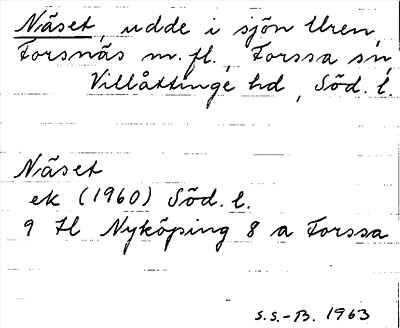 Näset, udde i sjön Uren,
Forsnäs m.fl., Forssa sn,
Villåttinge hd, Söd. l.
Näset
ek (1960) Söd. l.
9 H Nyköping 8 a Forssa
S.S.-B. 1963